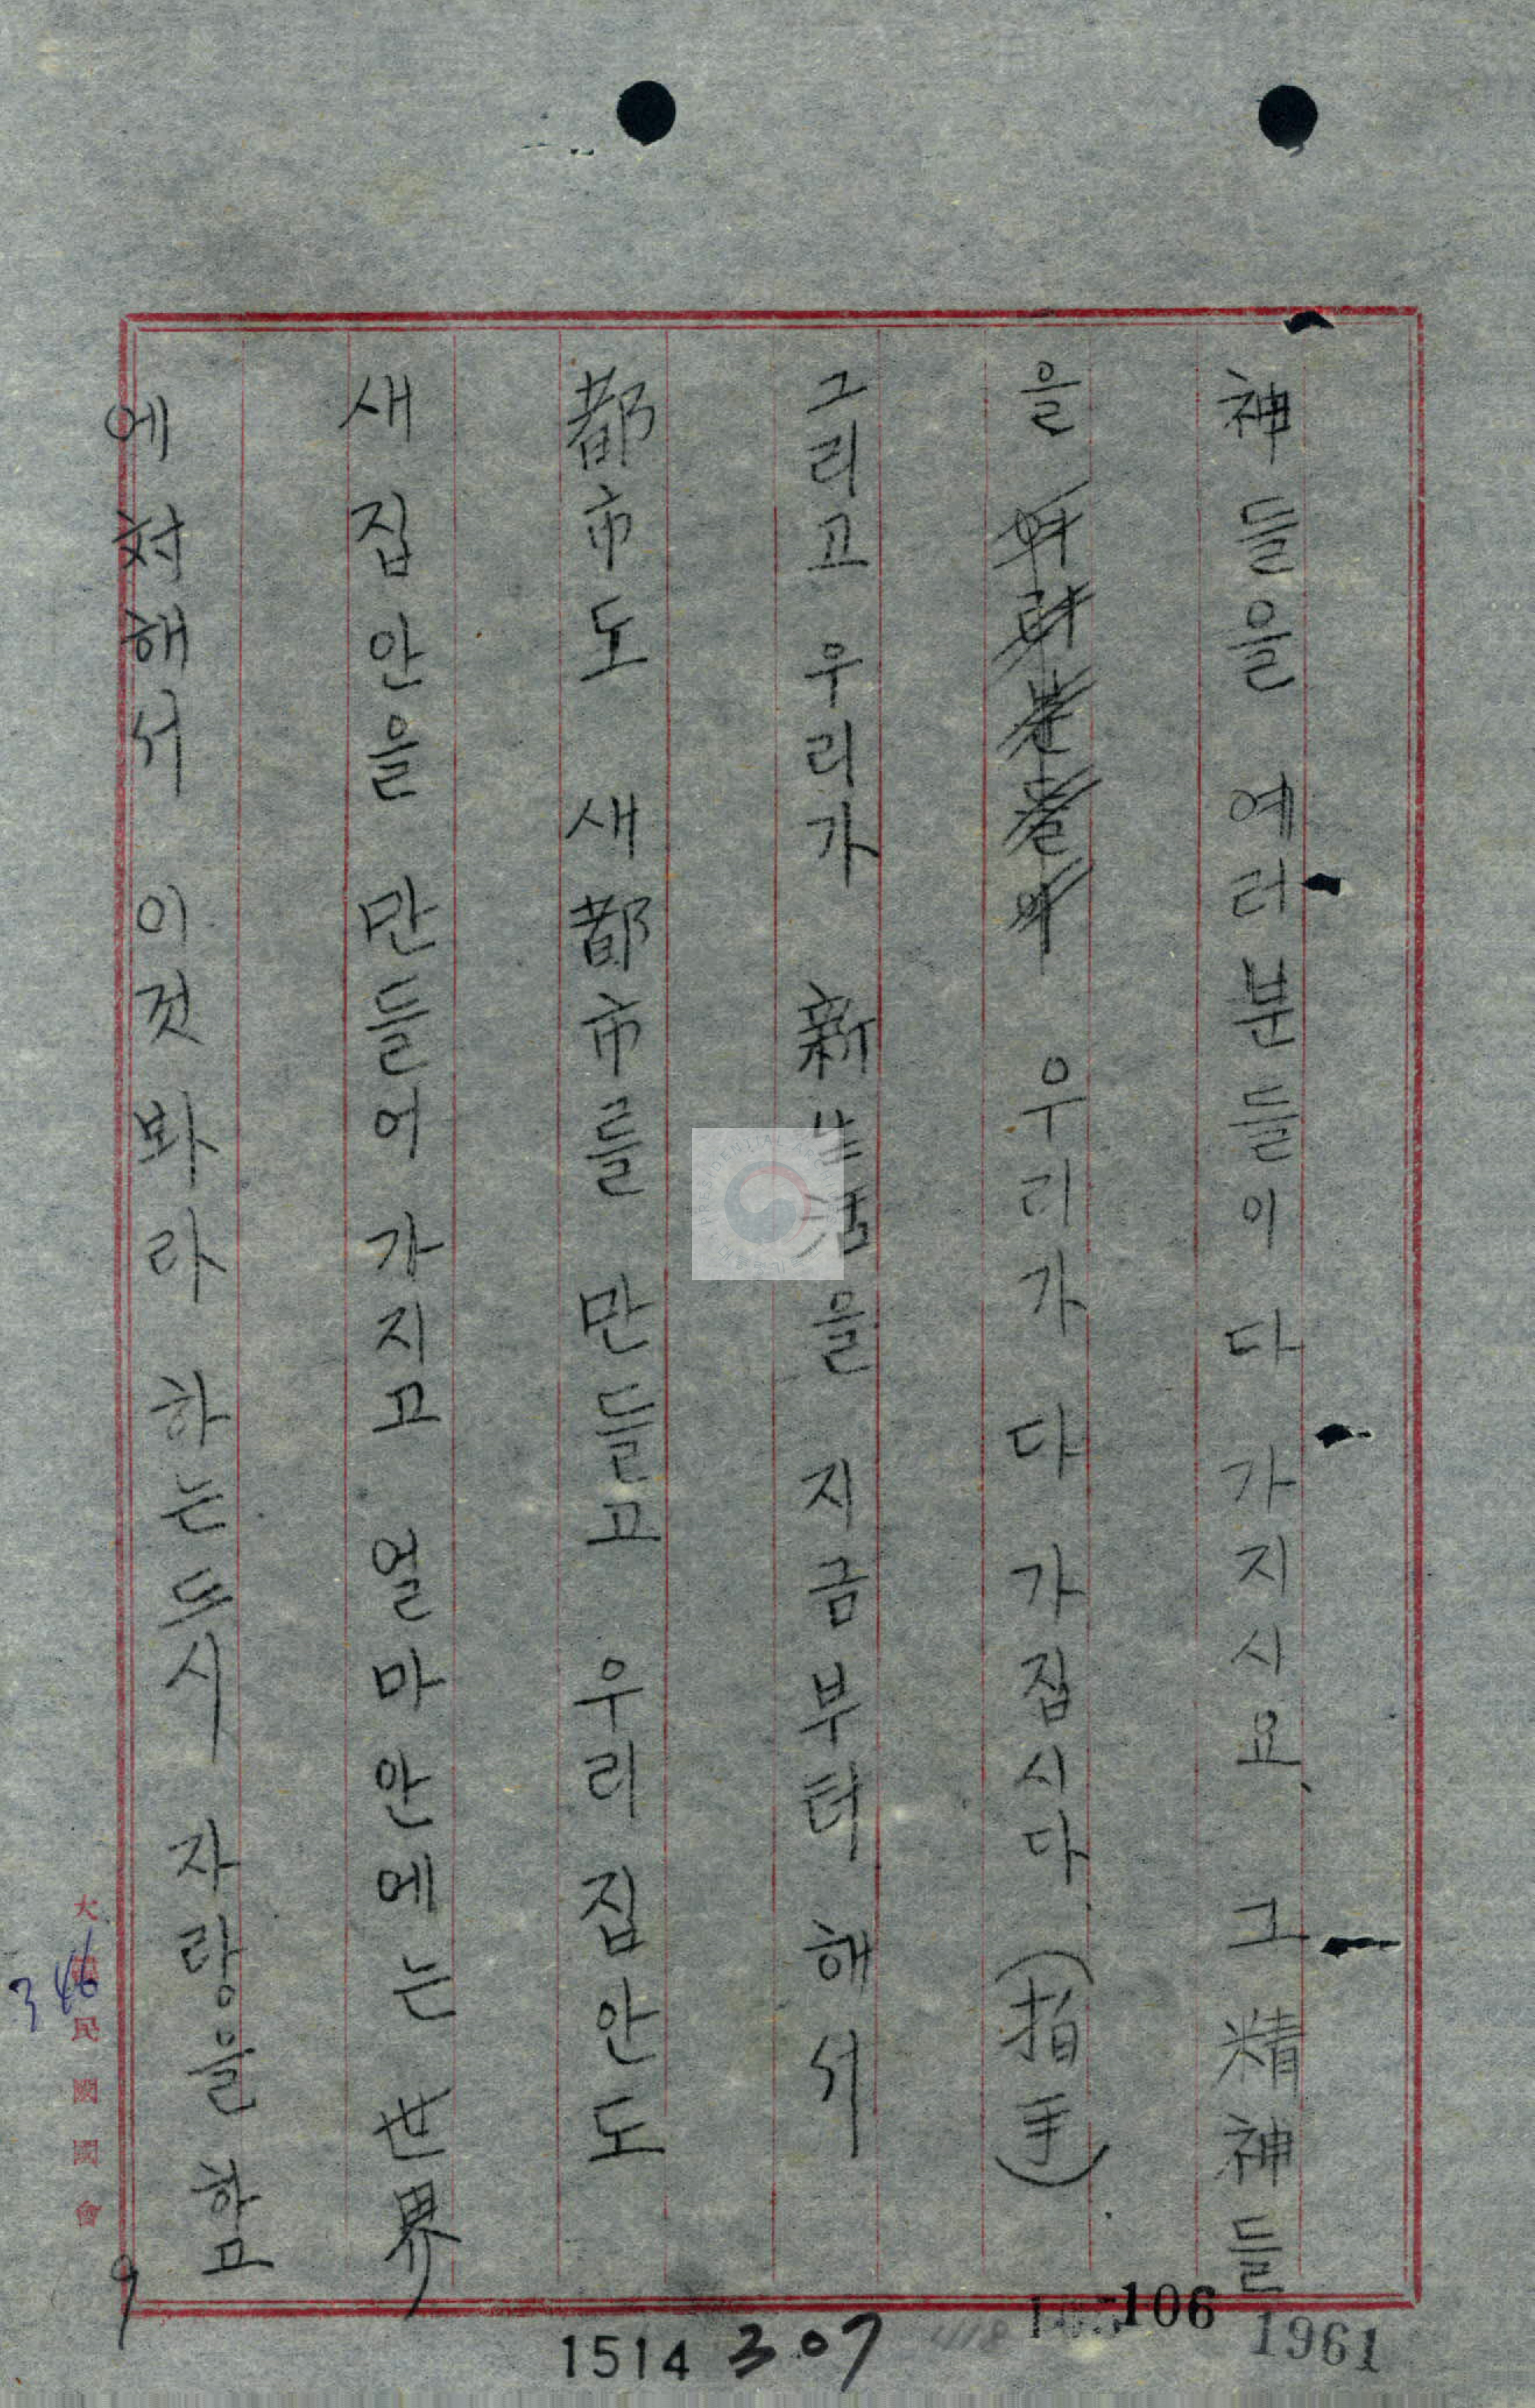 神들을 여러분들이 다 가지시요、 그 精神들
을 여러분들이 우리가 다 가집시다 (拍手)
그리고 우리가 新生活을 지금부터 해서
都市도 새都市를 만들고 우리 집안도
새집안을 만들어 가지고 얼마안에는 世界
에 対해서 이것 봐라 하는드시 자랑을 함
大韓民國國會
346
9
1514
307
106
1961